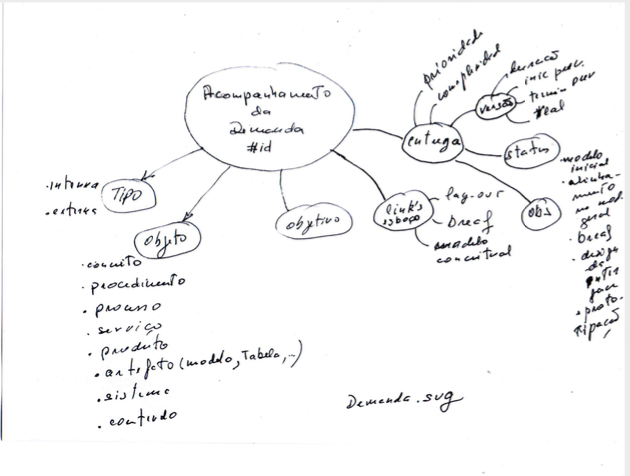 Acompanhamento
da
Demanda
#id
prioridade
complexidade
entrega
versão
duração
real
status
obs
• modelo
inicial
• alinha-
mento
• breaf
• proto-
tipação
link's
esboço
lay-out
breaf
modelo
conceitual
objetivo
Tipo
• interna
• externa
objeto
• conceito
• procedimento
• processo
• serviço
• produto
• artefato (modelo, Tabela, ..)
• sistema
• conteúdo
Demanda.svg